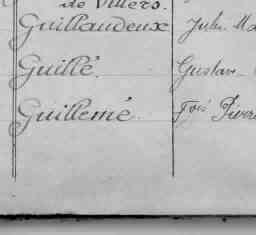 de Villers.
Guillaudeux Jules Ma
Guillé Gustav
Guillemé Fois Pierre